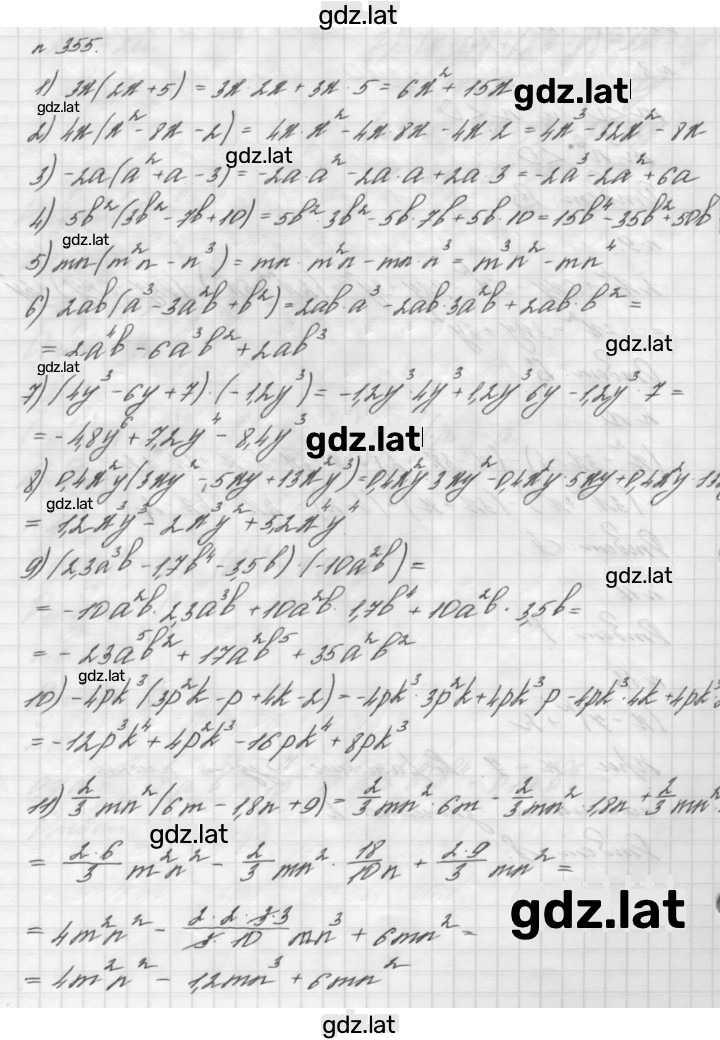 gdz.lat
n 355.
1) 3x(2x+5) = 3x·2x+3x·5 = 6x²+15x gdz.lat
gdz.lat
2) 4x(x²-8x-2) = 4x·x²-4x·8x-4x·2 = 4x³-32x²-8x
gdz.lat
3) -2a(a²+a-3) = -2a·a²-2a·a+2a·3 = -2a³-2a²+6a
4) 5b²(3b²-7b+10) = 5b²·3b²-5b·7b+5b·10 = 15b⁴-35b²+50b
gdz.lat
5) mn(m²n-n³) = mn·m²n-mn·n³ = m³n²-mn⁴
6) 2ab(a³-3a²b+b²) = 2ab·a³-2ab·3a²b+2ab·b² =
gdz.lat
= 2a⁴b-6a³b²+2ab³
gdz.lat
7) (4y³-6y+7)·(-1,2y³) = -1,2y³4y³+1,2y³6y-1,2y³·7 =
= -4,8y⁶+7,2y⁴-8,4y³ gdz.lat
8) 0,4x²y(3xy²-5xy+13x²y³) = 0,4x²y3xy²-0,4x²y5xy+0,4x²y
gdz.lat
= 1,2x³y³-2x³y²+5,2x⁴y⁴
9) (2,3a³b-1,7b⁴-3,5b)·(-10a²b) =
gdz.lat
= -10a²b·2,3a³b+10a²b·1,7b⁴+10a²b·3,5b =
= -23a⁵b²+17a²b⁵+35a²b²
gdz.lat
10) -4pk³(3p²k-p+4k-2) = -4pk³·3p²k+4pk³p-4pk³·4k+4pk³
= -12p³k⁴+4p²k³-16pk⁴+8pk³
11) 2/3mn²(6m-1,8n+9) = 2/3mn²·6m-2/3mn²·1,8n+2/3mn²
gdz.lat
= 2·6/3 m²n² - 2/3 mn²·18/10n + 2·9/3 mn² =
gdz.lat
= 4m²n² - 2·2·3·3/3·10 mn³ + 6mn² =
= 4m²n² - 1,2mn³ + 6mn²
gdz.lat